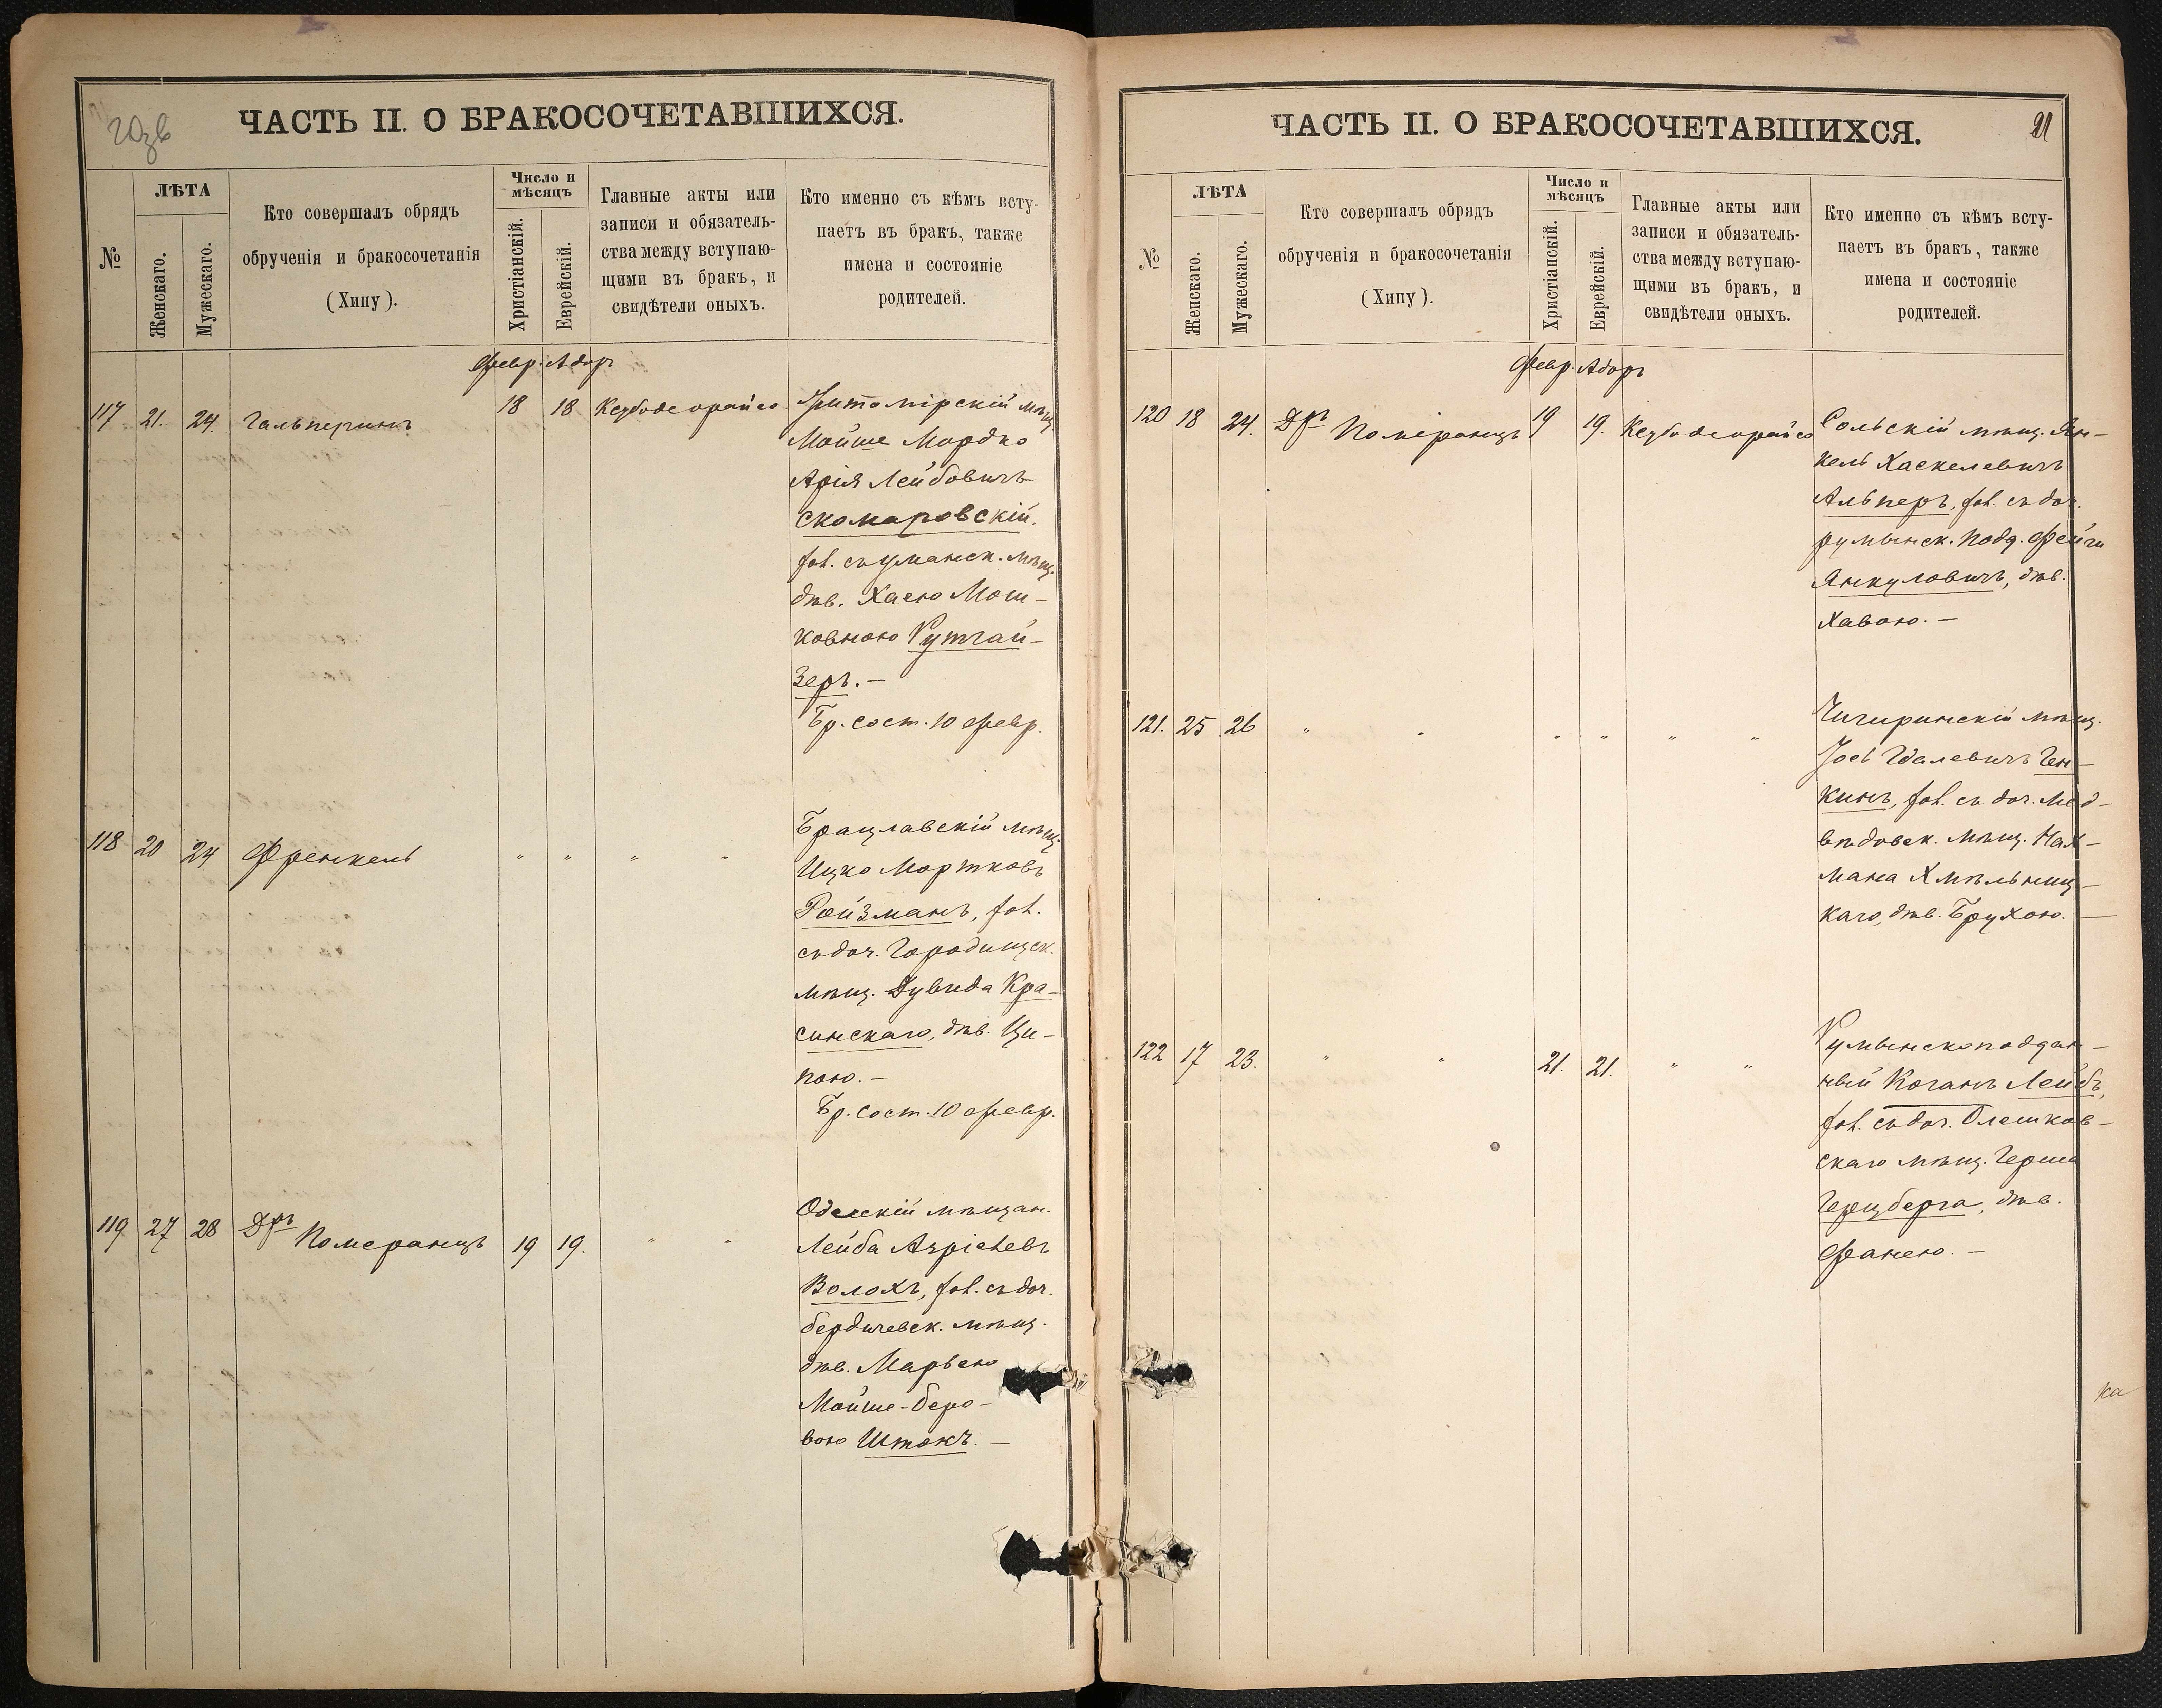 ЧАСТЬ II. О БРАКОСОЧЕТАВШИХСЯ.
№
ЛѢТА
Женскаго.
Мужескаго.
Кто совершалъ обрядъ
обрученія и бракосочетанія
(Хипу).
Число и
мѣсяцъ
Христіанскій.
Еврейскій.
Главные акты или
записи и обязатель-
ства между вступаю-
щими въ бракъ, и
свидѣтели оныхъ.
Кто именно съ кѣмъ всту-
паетъ въ бракъ, также
имена и состояніе
родителей.
Февр. Адоръ
117 21. 24. Гальперинъ 18 18 Кезубодеорайсо
Житомірскій мѣщ.
Мойше Мордко
Арія Лейбовичъ
Скомаровскій.
хол. съ уманск. мѣщ.
дѣв. Хаею Мош-
ковною Гутгай-
зеръ. —
Бр. сост. 10 февр.
118 20 24 Френкель " " " "
Брацлавскій мѣщ.
Ицко Мортковъ
Ройзманъ, хол.
съ доч. Городищск.
мѣщ. Дувида Кра-
синскаго, дѣв. Ци-
пою. —
Бр. сост. 10 февр.
119. 27 28 Дръ Померанцъ 19 19. " "
Одесскій мѣщан.
Лейба
Волохъ, хол. съ доч.
бердичевск. мѣщ.
дѣв. Марьею
Мойше-Беро-
вою Штокъ. —
ЧАСТЬ II. О БРАКОСОЧЕТАВШИХСЯ.
21
№
ЛѢТА
Женскаго.
Мужескаго.
Кто совершалъ обрядъ
обрученія и бракосочетанія
(Хипу).
Число и
мѣсяцъ
Христіанскій.
Еврейскій.
Главные акты или
записи и обязатель-
ства между вступаю-
щими въ бракъ, и
свидѣтели оныхъ.
Кто именно съ кѣмъ всту-
паетъ въ бракъ, также
имена и состояніе
родителей.
Февр. Адоръ
120 18 24. Дръ Померанцъ 19 19. Кезубодеорайсо
Сольскій мѣщ. Ян-
кель Хаскелевичъ
Альперъ, хол. съ доч.
румынск. подд. Фейги
Янкуловичъ, дѣв.
Хавою. —
121. 25 26 " " " " " "
Чигиринскій мѣщ.
Іось Гдалевичъ Ген-
кинъ, хол. съ доч. Мед-
вѣдовск. мѣщ. Нах-
мана Хмѣльниц-
каго, дѣв. Брухою. —
122 17 23. " " 21. 21. " "
Румынскоподдан-
ный Коганъ Лейбъ,
хол. съ доч. Олешков-
скаго мѣщ. Герша
Герцберга, дѣв.
Фанею. —
ка